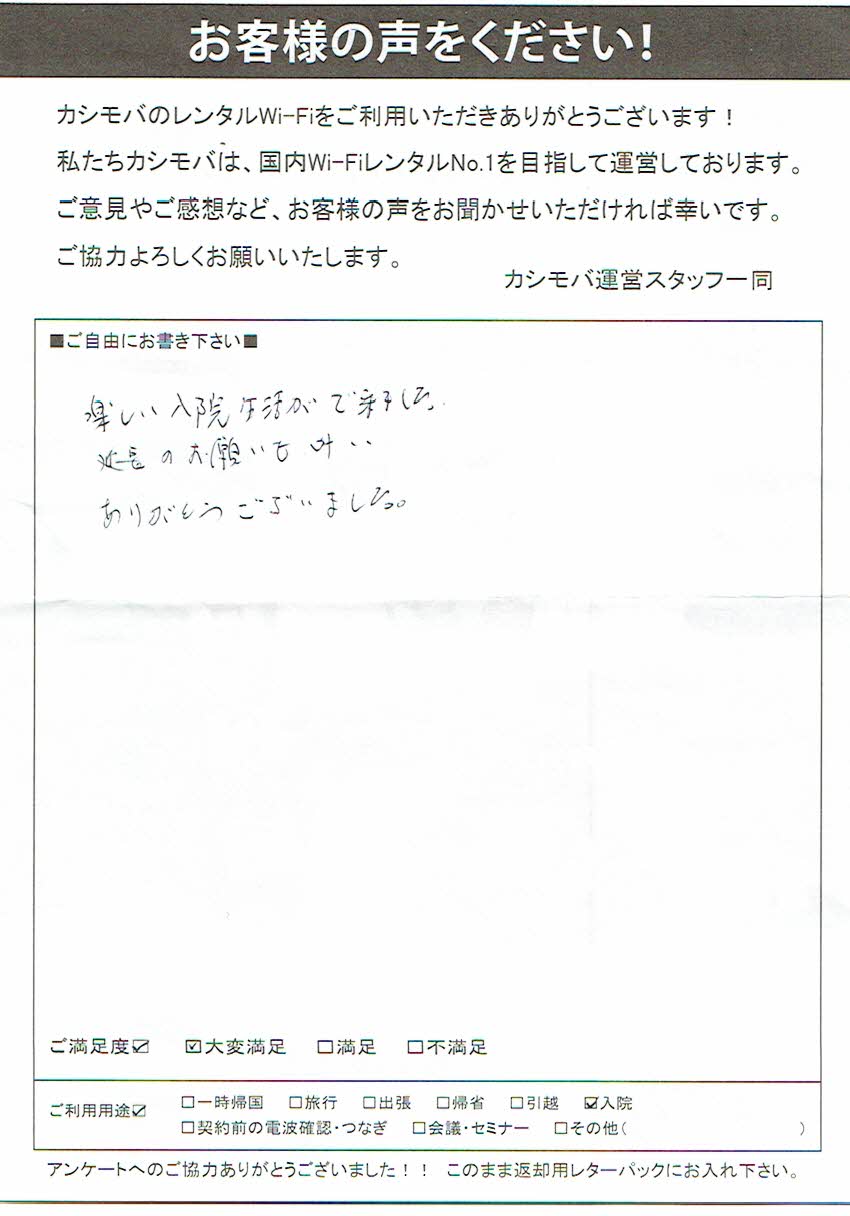 お客様の声をください!
カシモバのレンタルWi-Fiをご利用いただきありがとうございます！
私たちカシモバは、国内Wi-FiレンタルNo.1を目指して運営しております。
ご意見やご感想など、お客様の声をお聞かせいただければ幸いです。
ご協力よろしくお願いいたします。
カシモバ運営スタッフ一同
■ご自由にお書き下さい■
楽しい入院生活がで来ました。
延長のお願いも叶い
ありがとうございました。
ご満足度☑ ☑大変満足 □満足 □不満足
ご利用用途☑ □一時帰国 □旅行 □出張 □帰省 □引越 ☑入院
□契約前の電波確認・つなぎ □会議・セミナー □その他( )
アンケートへのご協力ありがとうございました！！ このまま返却用レターパックにお入れ下さい。